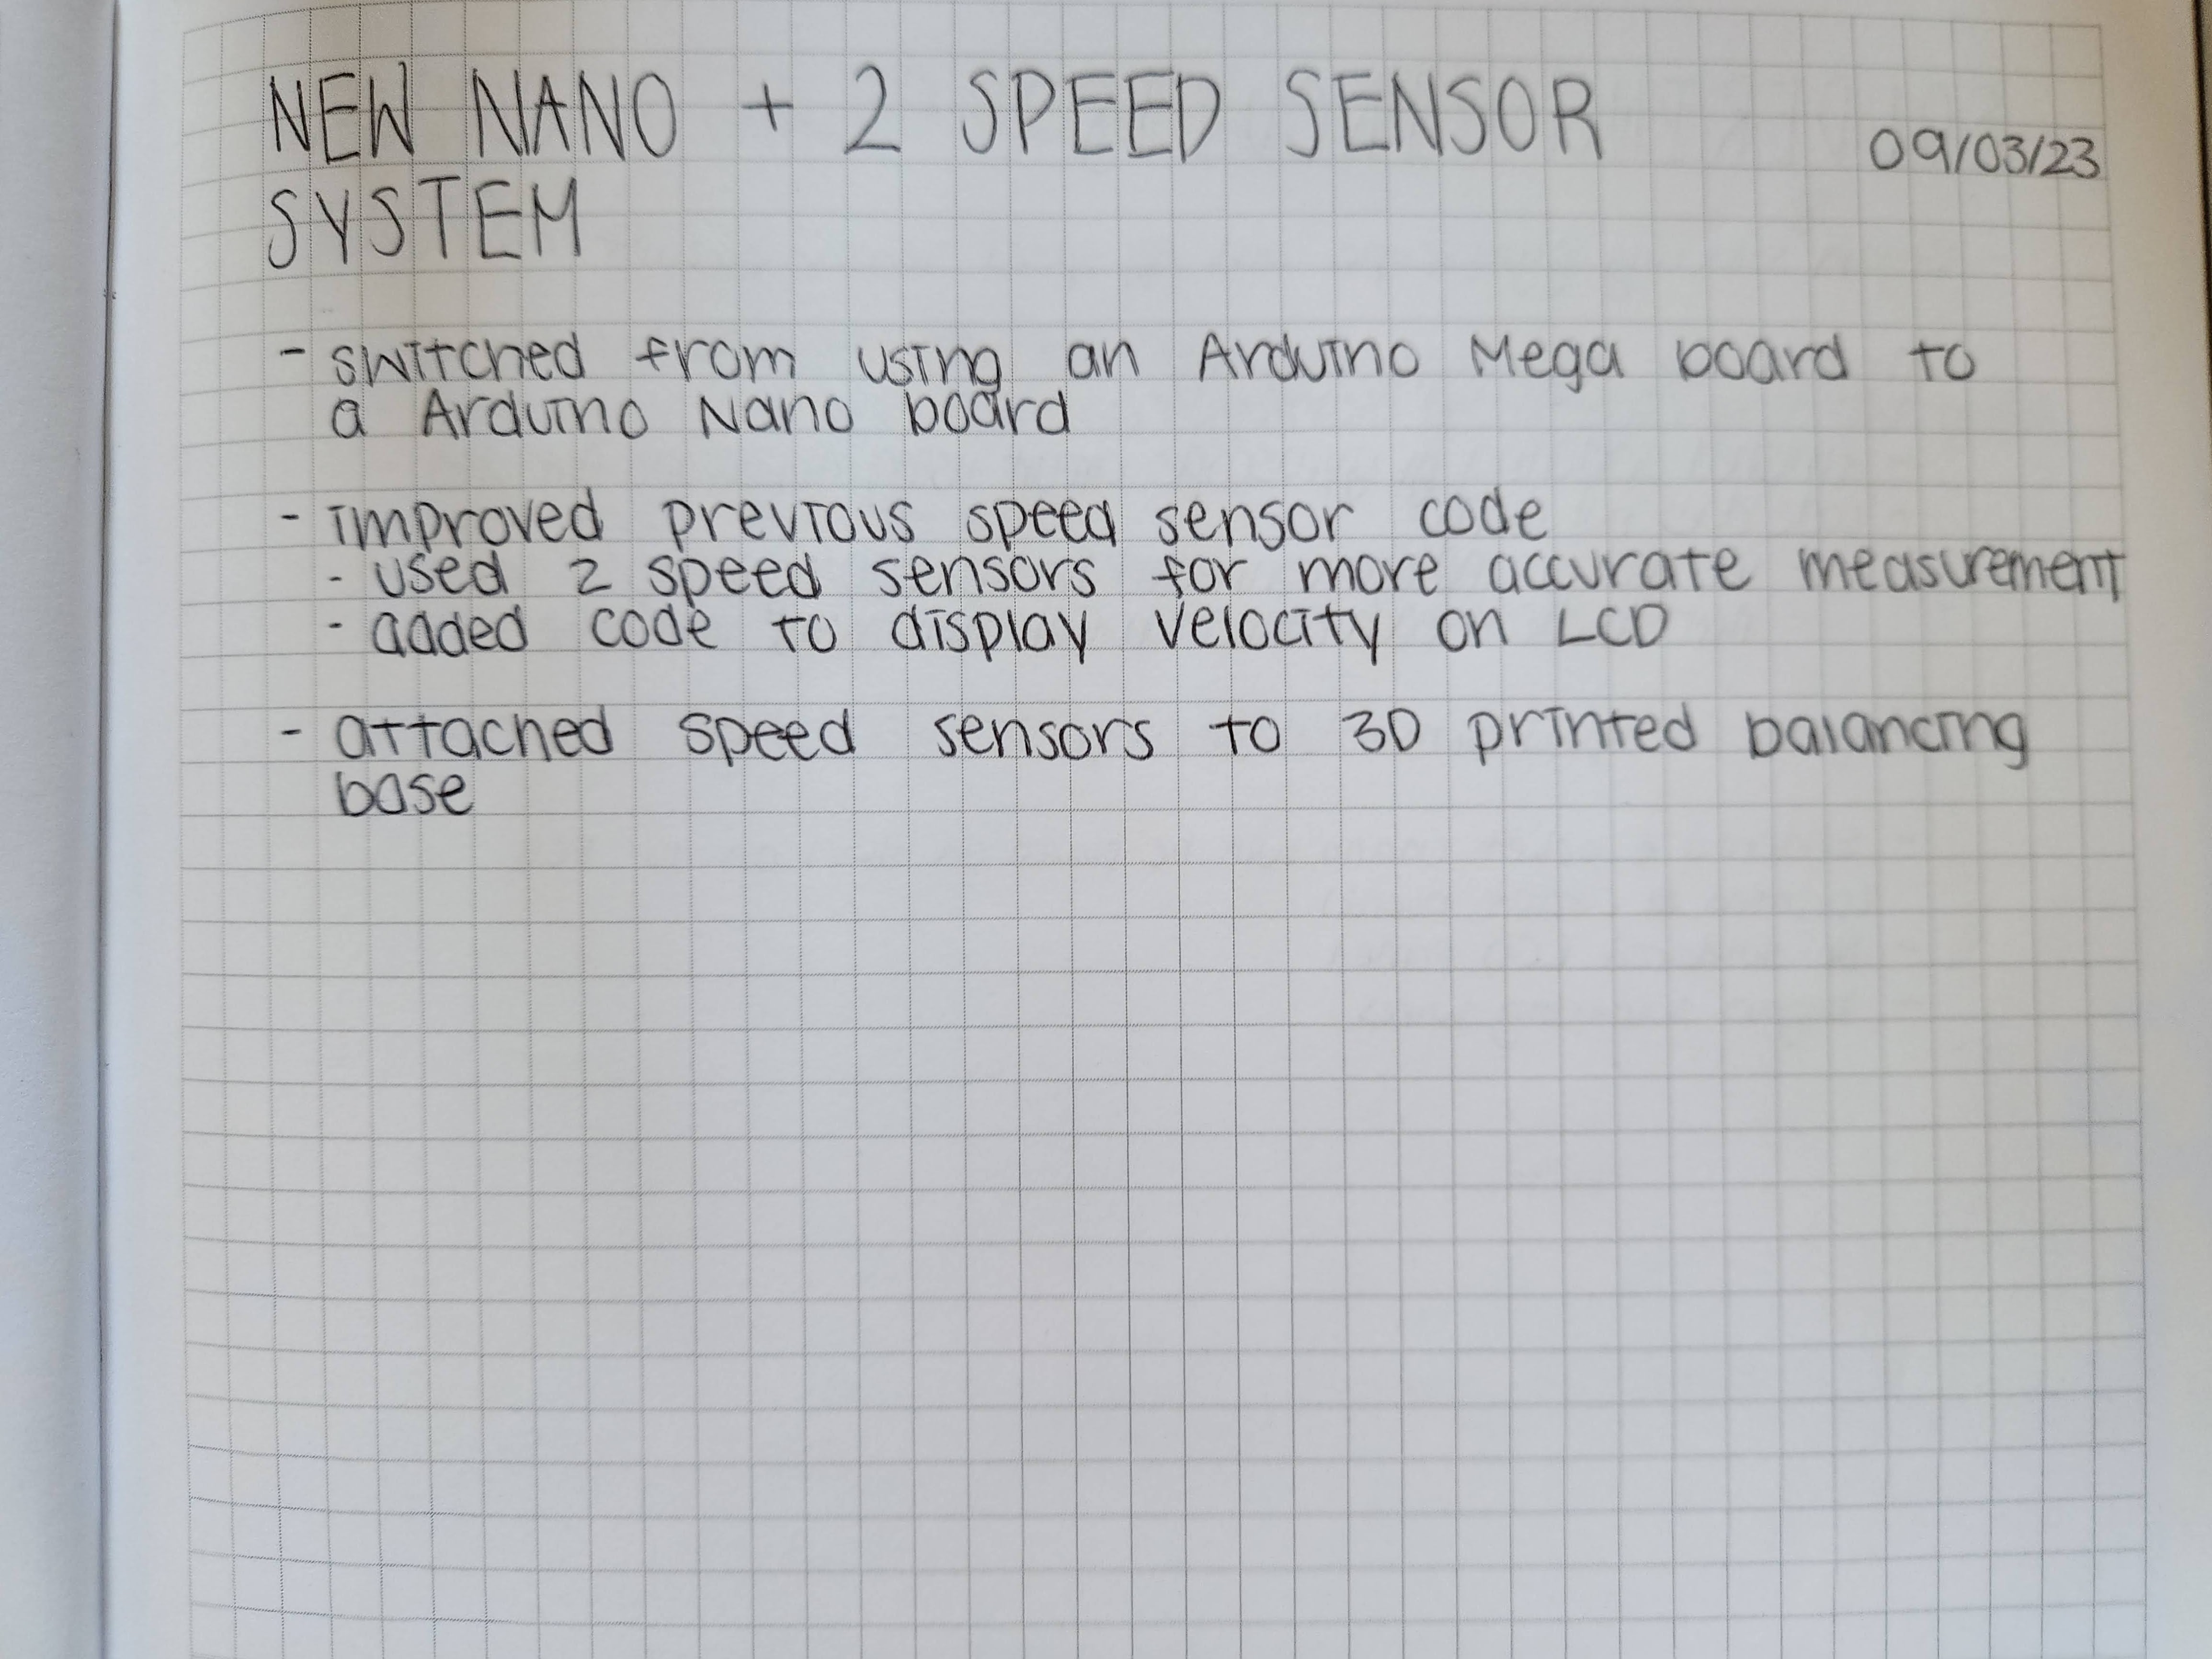 NEW NANO + 2 SPEED SENSOR
09/03/23
SYSTEM
- switched from using an Arduino Mega board to
a Arduino Nano board
- improved previous speed sensor code
- used 2 speed sensors for more accurate measurement
- added code to display velocity on LCD
- attached speed sensors to 3D printed balancing
base